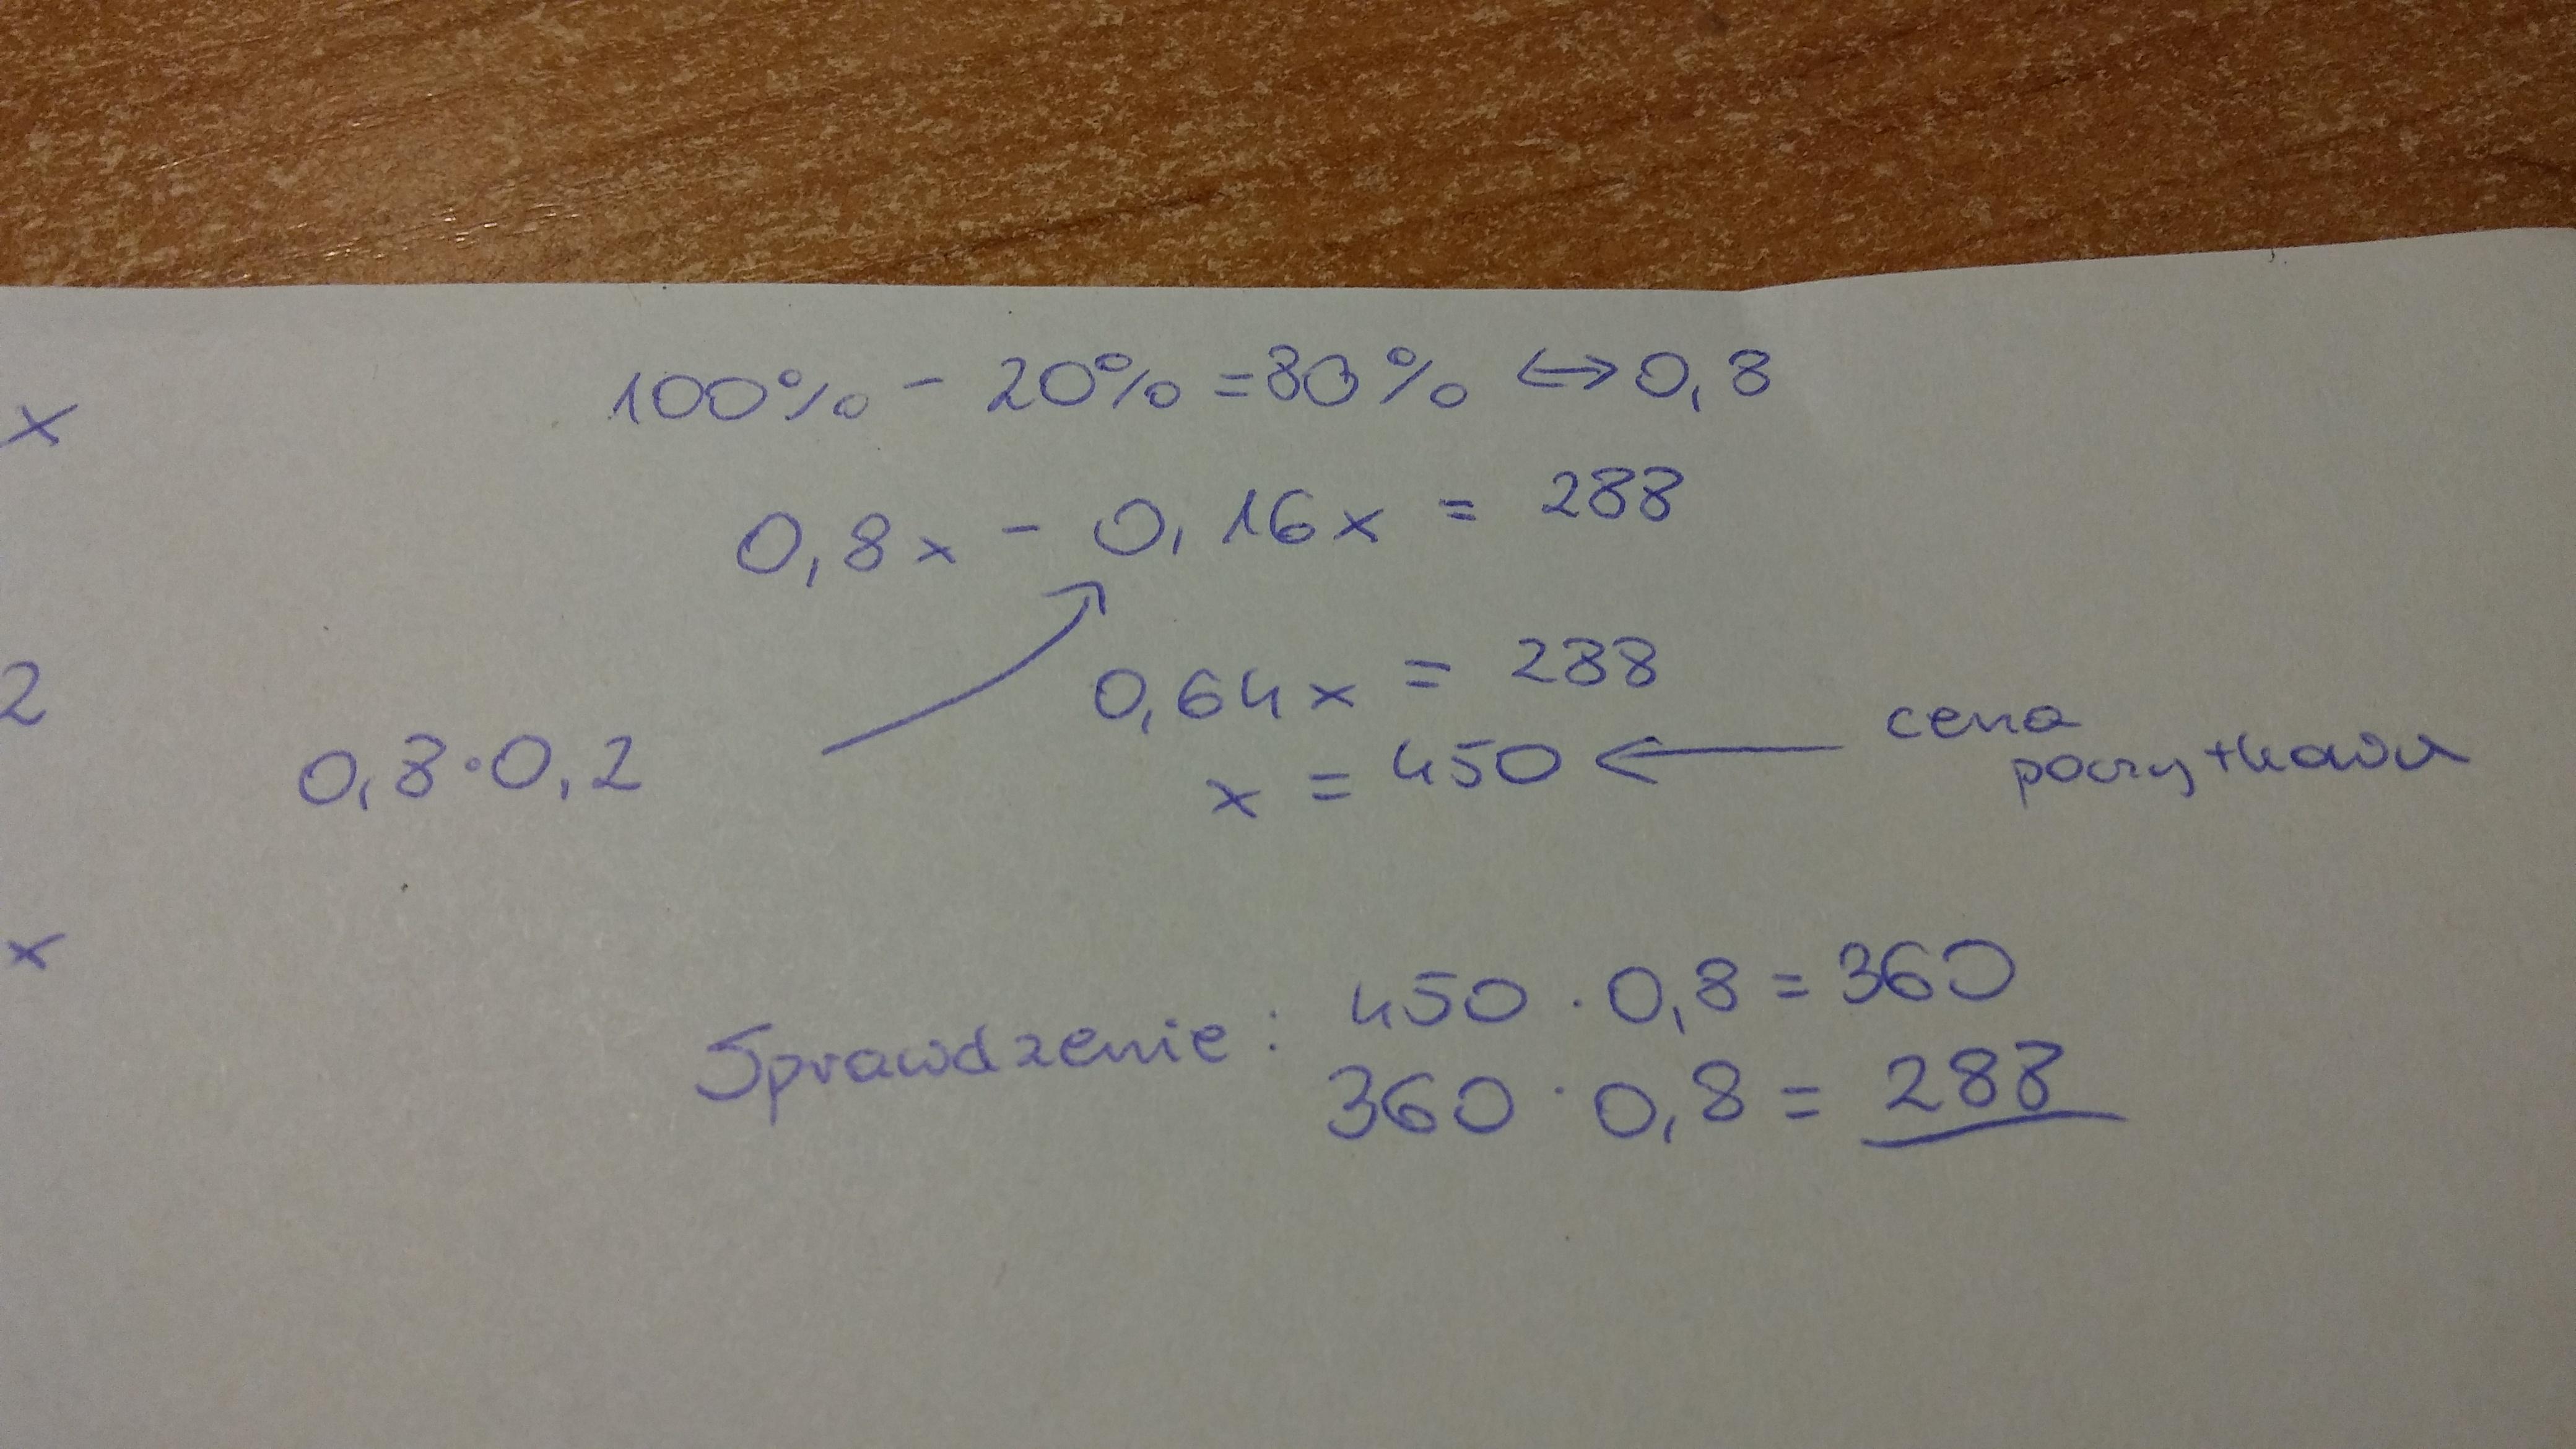 x
100% - 20% = 80% ↔ 0,8
0,8x - 0,16x = 288
2
0,8·0,2
0,64x = 288
x = 450 ← cena
początkowa
x
Sprawdzenie: 450 · 0,8 = 360
360 · 0,8 = 288